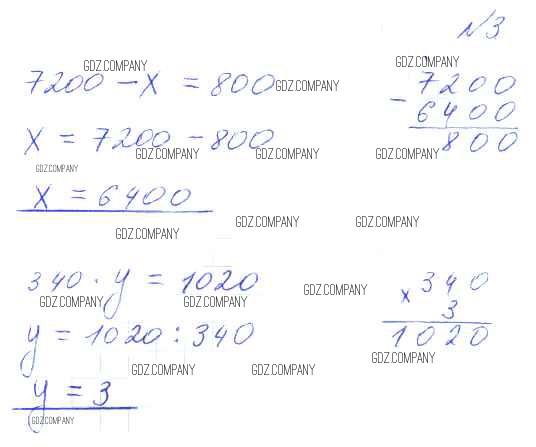 №3.
GDZ.COMPANY GDZ.COMPANY
7200 - x = 800 GDZ.COMPANY 7200
x = 7200 - 800 - 6400
GDZ.COMPANY GDZ.COMPANY GDZ.COMPANY 800
GDZ.COMPANY
x = 6400
GDZ.COMPANY GDZ.COMPANY
GDZ.COMPANY
340 · y = 1020 GDZ.COMPANY x 340
GDZ.COMPANY GDZ.COMPANY 3
y = 1020 : 340 1020
GDZ.COMPANY
GDZ.COMPANY GDZ.COMPANY
y = 3
GDZ.COMPANY